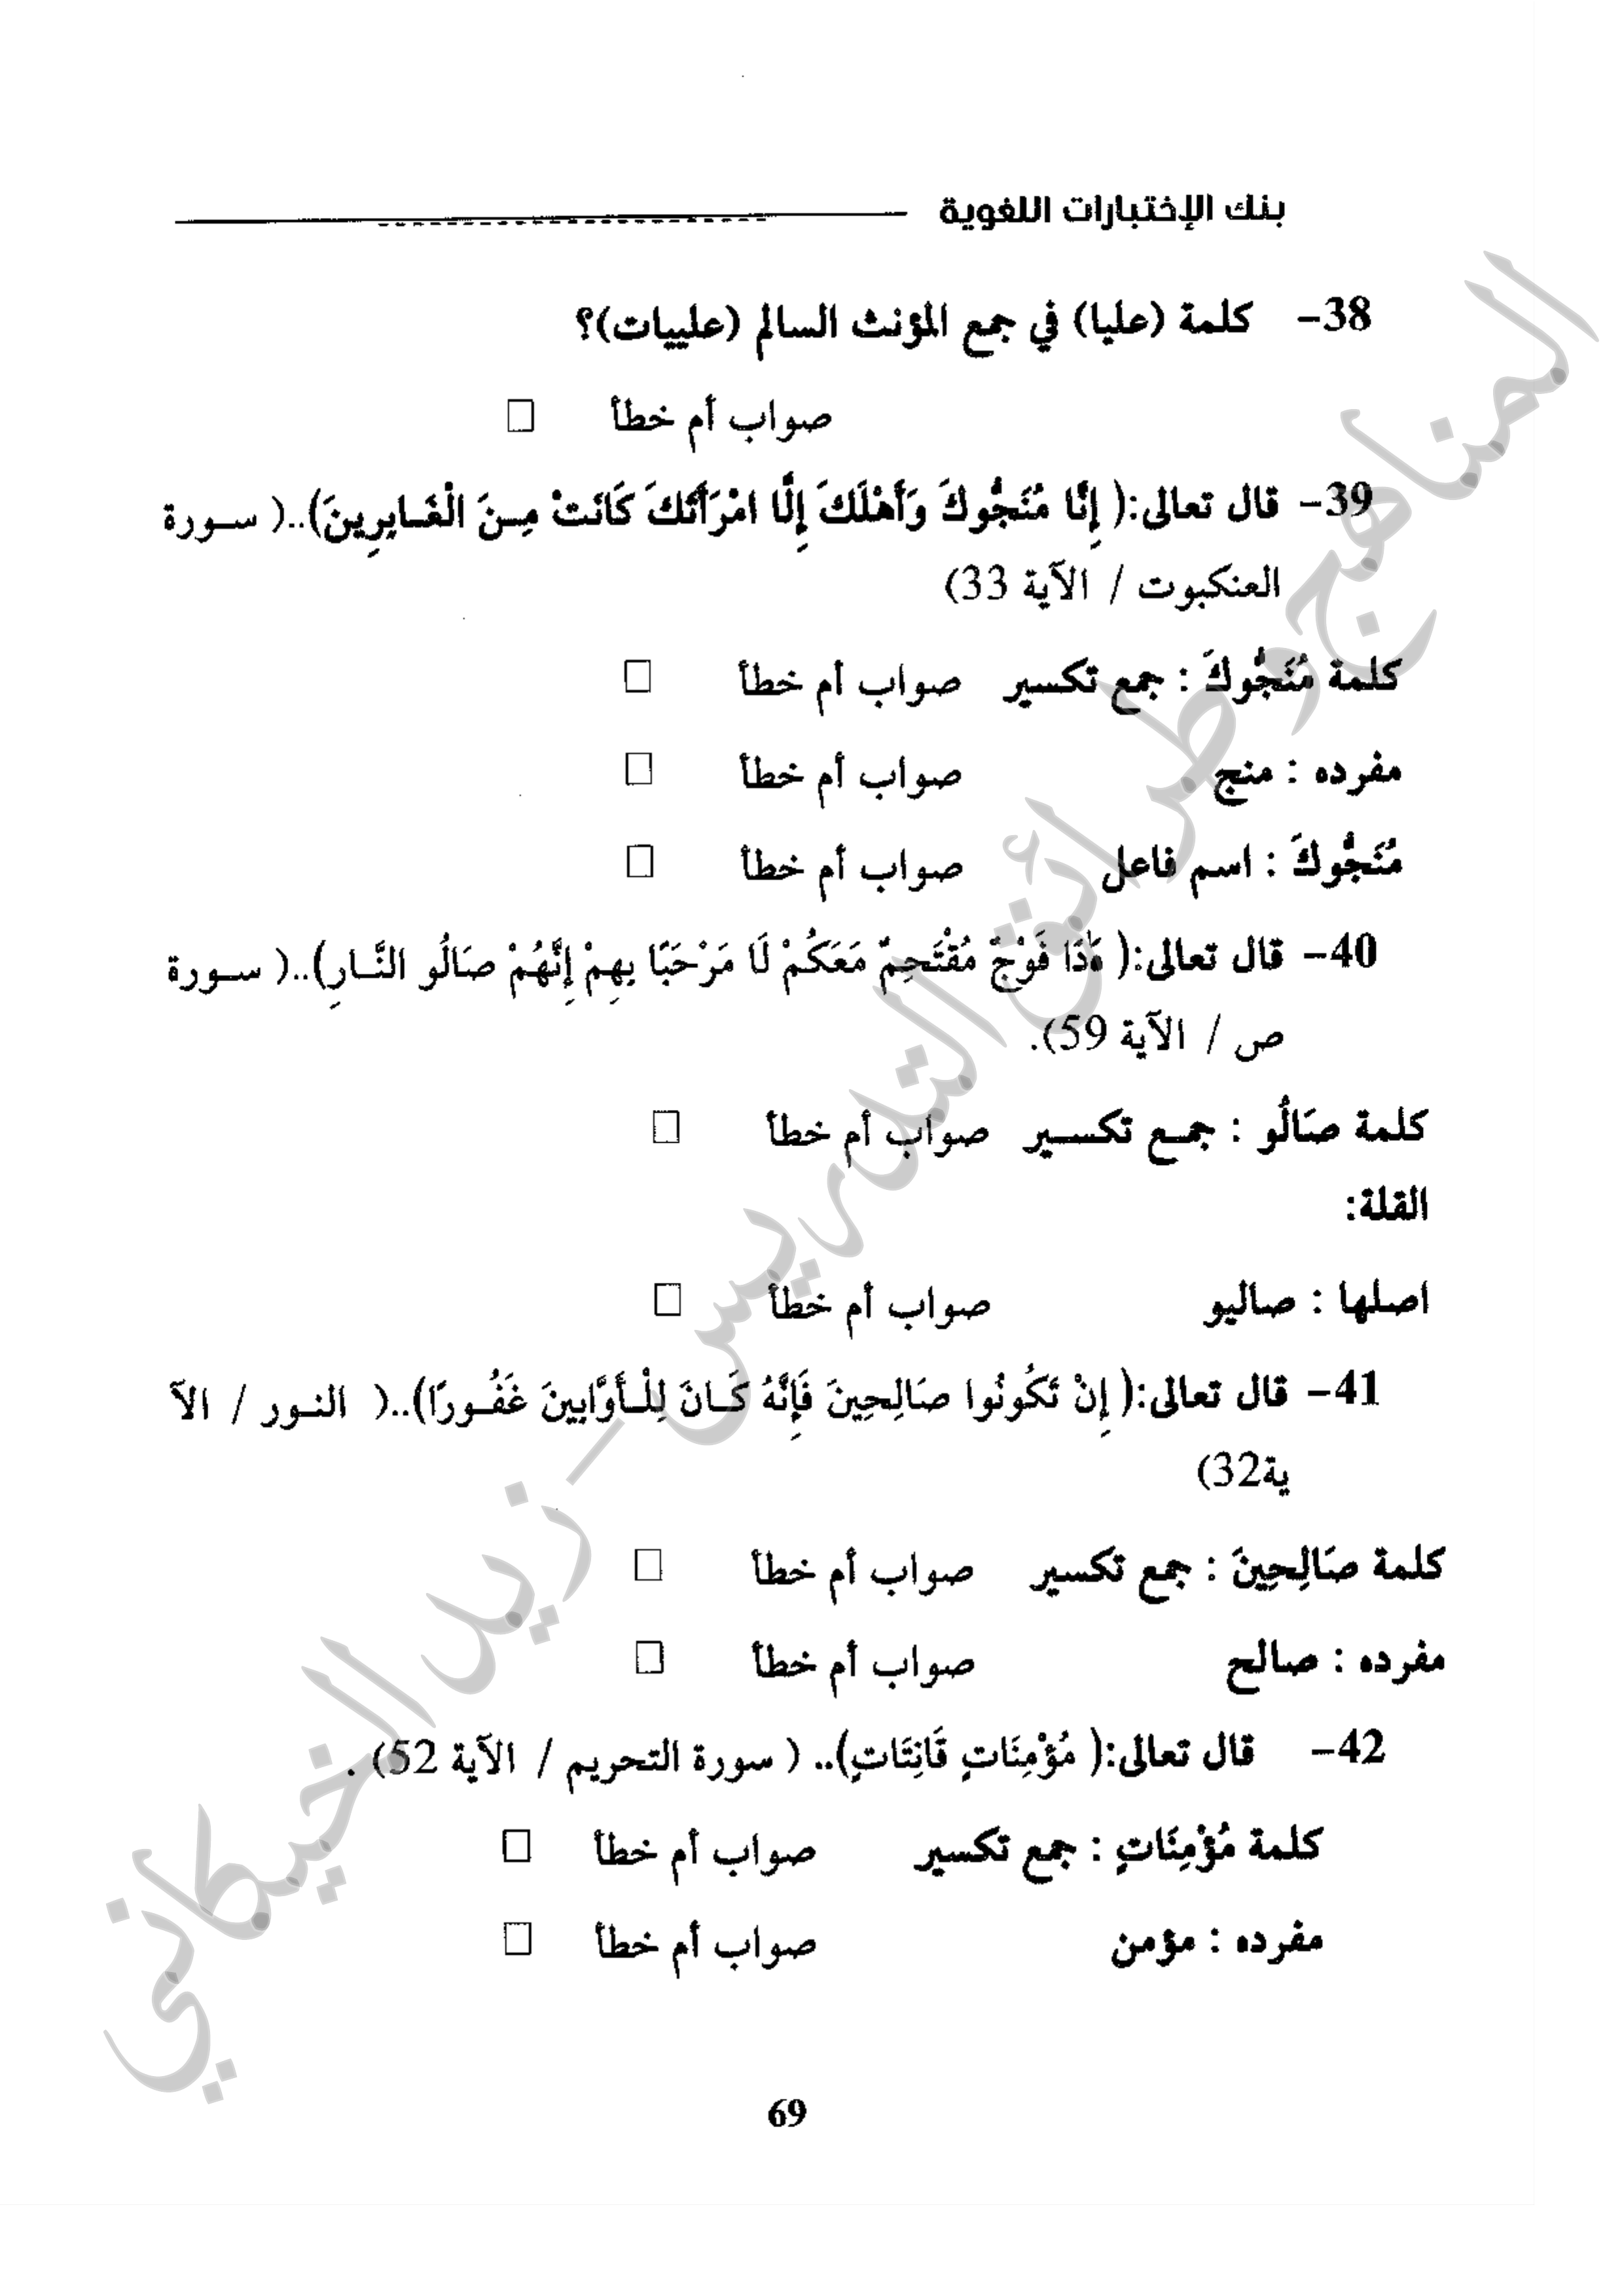 بنك الإختبارات اللغوية
38- كلمة (عليا) في جمع المؤنث السالم (علييات)؟
صواب أم خطأ □
39- قال تعالى:( إِنَّا مُنَجُّوكَ وَأَهْلَكَ إِلَّا امْرَأَتَكَ كَانَتْ مِـنَ الْغَـابِرِينَ)..( سـورة
العنكبوت / الآية 33)
كلمة مُنَجُّوكَ : جمع تكسير صواب أم خطأ □
مفرده : منج صواب أم خطأ □
مُنَجُّوكَ : اسم فاعل صواب أم خطأ □
40- قال تعالى:( هَٰذَا فَوْجٌ مُقْتَحِمٌ مَعَكُمْ لَا مَرْحَبًا بِهِمْ إِنَّهُمْ صَالُو النَّـارِ)..( سـورة
ص / الآية 59).
كلمة صَالُو : جمـع تكسـير صواب أم خطأ □
القلة:
اصلها : صاليو صواب أم خطأ □
41- قال تعالى:( إِنْ تَكُونُوا صَالِحِينَ فَإِنَّهُ كَـانَ لِلْـأَوَّابِينَ غَفُـورًا)..( النـور / الآ
ية32)
كلمة صَالِحِينَ : جمع تكسير صواب أم خطأ □
مفرده : صالح صواب أم خطأ □
42- قال تعالى:( مُؤْمِنَاتٍ قَانِتَاتٍ).. ( سورة التحريم / الآية 52) .
كلمة مُؤْمِنَاتٍ : جمع تكسير صواب أم خطأ □
مفرده : مؤمن صواب أم خطأ □
69
المناهج وطرائق التدريس - زيد الخيكاني